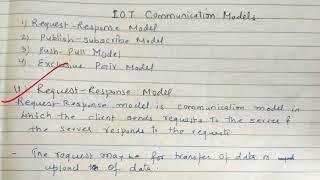 IOT Communication Models
1) Request-Response Model
2) Publish-Subscribe Model
3) Push-Pull Model
4) Exclusive Pair Model
(1) Request-Response Model
Request-Response model is communication model in
which the client sends requests to the server &
the server responds to the requests
- The request may be for transfer of data or
upload of data.